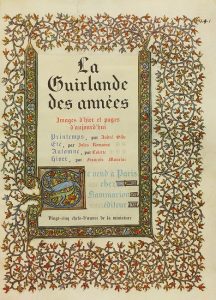 La
Guirlande
des années
Images d'hier et pages
d'aujourd'hui
Printemps, par André Gide
Été, par Jules Romains
Automne, par Colette
Hiver, par François Mauriac
Se vend à Paris
chez
Flammarion
éditeur
Vingt-cinq chefs-d'œuvre de la miniature